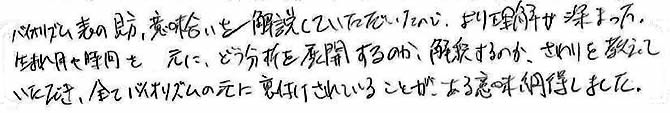 バイオリズム表の見方、意味合いを解説していただいたので、より理解が深まった。
生まれ月や時間を元に、どう分析を展開するのか、解釈するのか、さわりを教えて
いただき、全てバイオリズムの元に裏付けされていることが、ある意味納得しました。